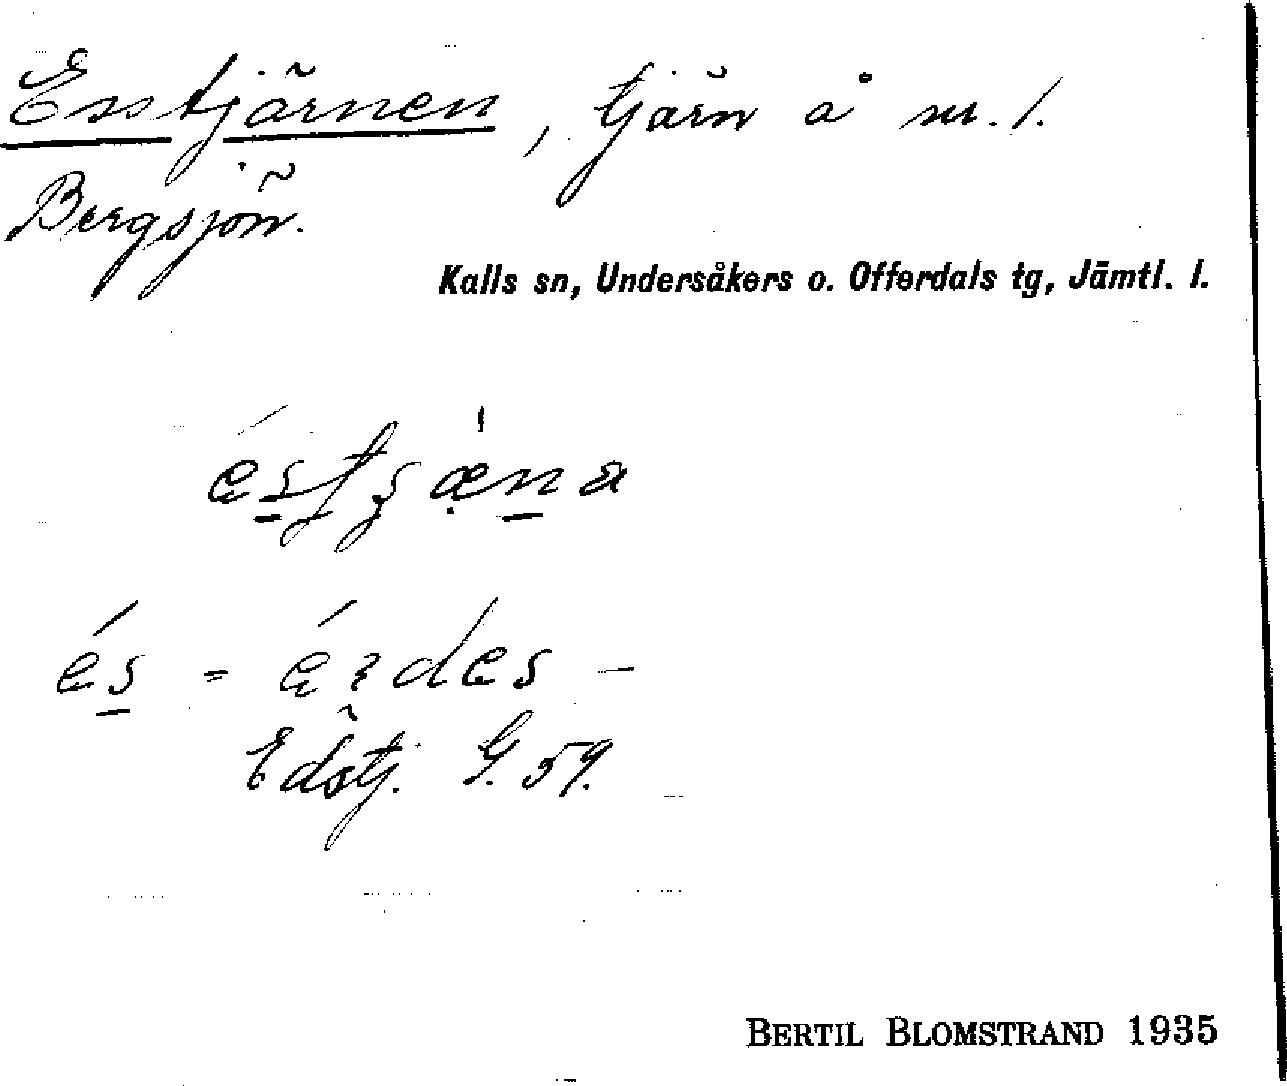 Esstjärnen, tjärn å nr. 1.
Bergsjön.
Kalls sn, Undersåkers o. Offerdals tg, Jämtl. l.
és = 
Edstj. G. 59.
BERTIL BLOMSTRAND 1935